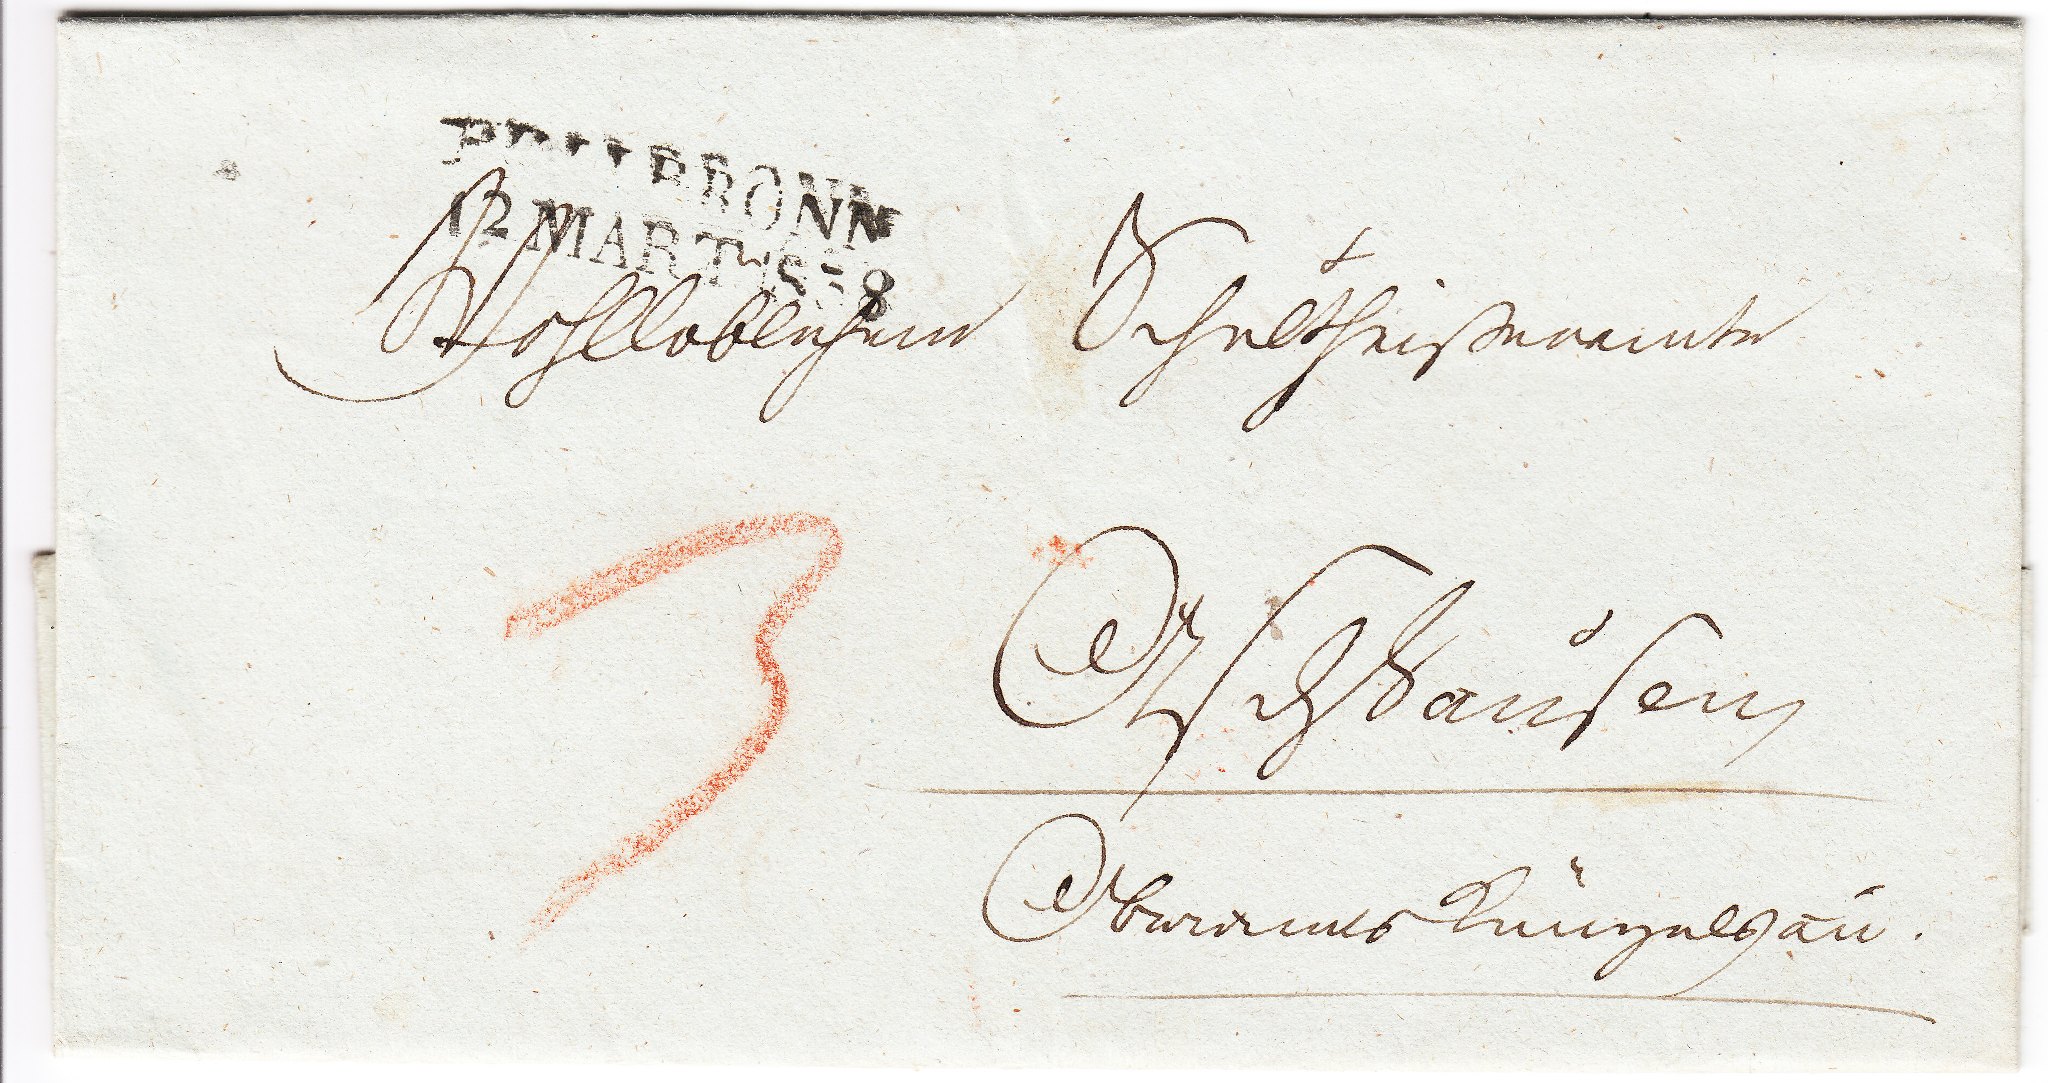 HEILBRONN
12 MART 1838
Wohllöblichem Schultheißenamte
3
Aschhausen
Oberamts Künzelsau.